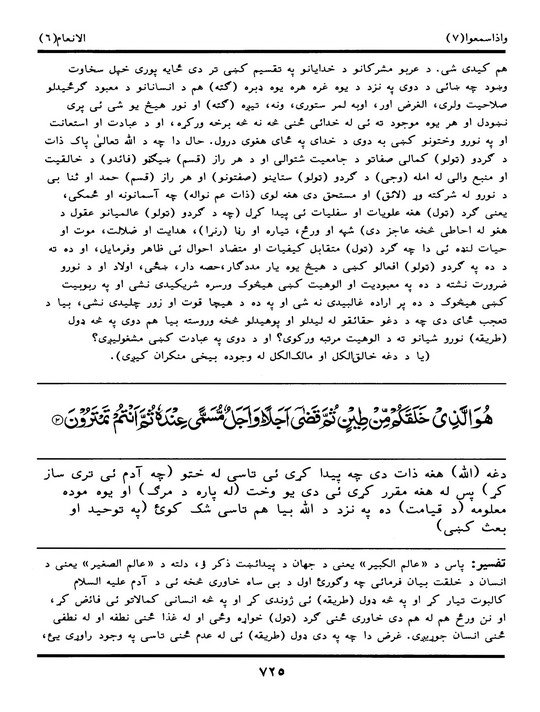 واذاسمعوا(٧) الانعام(٦)
هم کیدی شی. د عربو مشرکانو د خدایانو په تقسیم کښی تر دی ځایه پوری خپل سخاوت
وښود چه ښائی د دوی په نزد د یوه غره هره یوه ډبره (گټه) هم د انسانانو د معبود گرځیدلو
صلاحیت ولری، الغرض اور، اوبه لمر ستوری، ونه، تیږه (گټه) او نور هیڅ یو شی ئی پری
نښودل او هر یوه موجود ته ئی له خدائی ځنی څه نه څه برخه ورکړه، او د عبادت او استعانت
او په نورو وختونو کښی به دوی د خدای په ځای هغوی درول. حال دا چه د الله تعالیٰ پاک ذات
د گردو (تولو) کمالی صفاتو د جامعیت شتوالی او د هر راز (قسم) ښیگڼو (فائدو) د خالقیت
او منبع والی له امله (وجی) د گردو (تولو) ستاینو (صفتونو) او هر راز (قسم) حمد او ثنا بی
د نورو له شرکته وړ (لائق) او مستحق دی هغه لوی (ذات عم نواله) چه آسمانونه او ځمکی،
یعنی گرد (تول) هغه علویات او سفلیات ئی پیدا کړل (چه د گردو (تولو) عالمیانو عقول د
هغو له احاطی څخه عاجز دی) شپه او ورځ، تیاره او رڼا (رنړا)، هدایت او ضلالت، موت او
حیات لنډه ئی دا چه گرد (تول) متقابل کیفیات او متضاد احوال ئی ظاهر وفرمایل، او ده ته
د ده په گردو (تولو) افعالو کښی د هیڅ یوه یار مددگار،حصه دار، ښځی، اولاد او د نورو
ضرورت نشته د ده په معبودیت او الوهیت کښی هیڅوک ورسره شریکیدی نشی او په ربوبیت
کښی هیڅوک د ده پر اراده غالبیدی نه شی او په ده د هیچا قوت او زور چلیدی نشی، بیا د
تعجب ځای دی چه د دغو حقائقو له لیدلو او پوهیدلو څخه وروسته بیا هم دوی په څه ډول
(طریقه) نورو شیانو ته د الوهیت مرتبه ورکوی؟ او د دوی په عبادت کښی مشغولیږی؟
(یا د دغه خالق‌الکل او مالک‌الکل له وجوده بیخی منکران کیږی).
هُوَ الَّذِیْ خَلَقَكُمْ مِّنْ طِیْنٍ ثُمَّ قَضٰۤی اَجَلًا وَاَجَلٌ مُّسَمًّی عِنْدَهٗ ثُمَّ اَنْتُمْ تَمْتَرُوْنَ ﴿٢﴾
دغه (الله) هغه ذات دی چه پیدا کړی ئی تاسی له ختو (چه آدم ئی تری ساز
کړ) پس له هغه مقرر کړی ئی دی یو وخت (له پاره د مرگ) او یوه موده
معلومه (د قیامت) ده په نزد د الله بیا هم تاسی شک کوئ (په توحید او
بعث کښی)
تفسیر: پاس د «عالم الکبیر» یعنی د جهان د پیدائښت ذکر ؤ، دلته د «عالم الصغیر» یعنی د
انسان د خلقت بیان فرمائی چه وگورئ اول د بی ساه خاوری څخه ئی د آدم علیه السلام
کالبوت تیار کړ او په څه ډول (طریقه) ئی ژوندی کړ او په څه انسانی کمالاتو ئی فائض کړ،
او نن ورځ هم له هم دی خاوری ځنی گرد (تول) خواړه وځی او له غذا ځنی نطفه او له نطفی
ځنی انسان جوړیږی. غرض دا چه په دی ډول (طریقه) ئی له عدم ځنی تاسی په وجود راوړی یئ،
٧٢٥